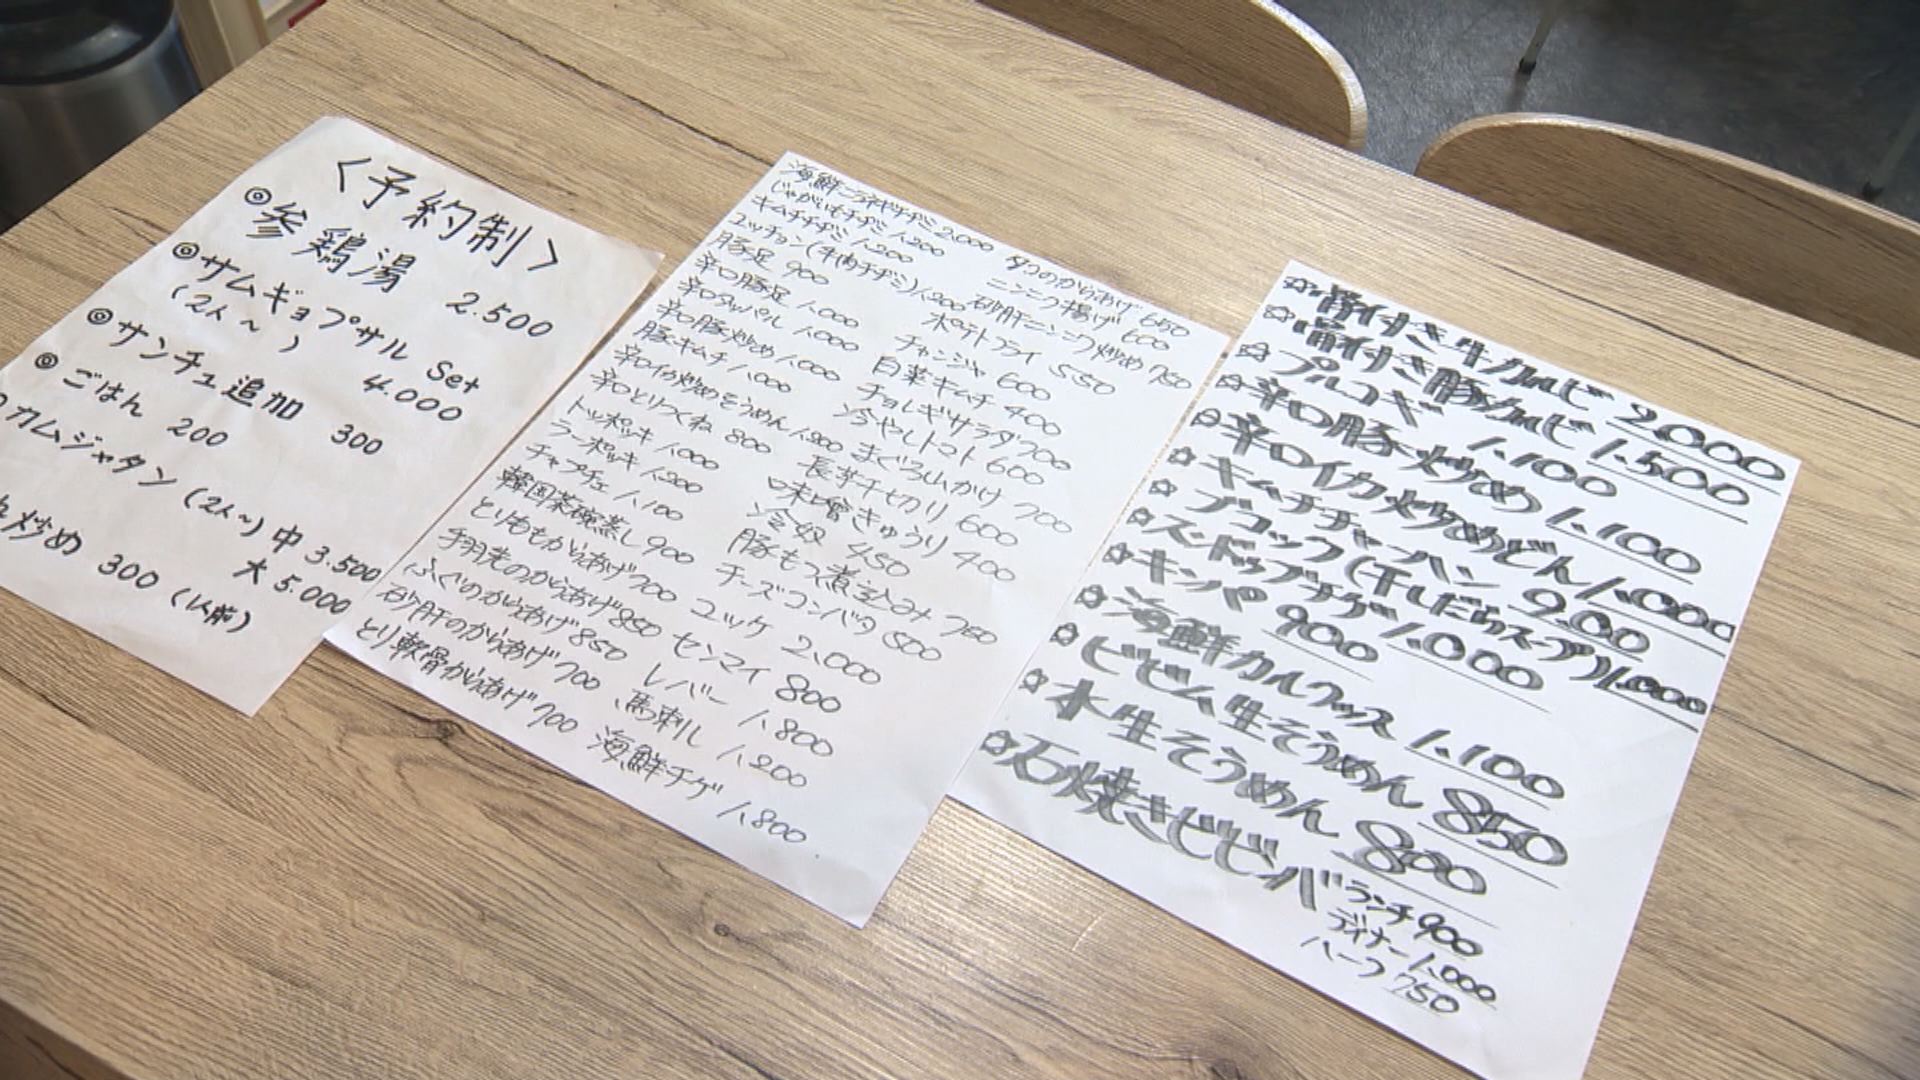 〈予約制〉
◎参鶏湯 2.500
◎サムギョプサル Set
(2人～) 4.000
◎サンチュ追加 300
◎ごはん 200
カムジャタン (2人～) 中 3.500
大 5.000
炒め 300 (1人前)
海鮮ネギチヂミ 2,000
じゃがいもチヂミ 1,200
キムチチヂミ 1,200
ユッチョン(牛肉チヂミ) 1,200
豚足 900
辛口豚足 1,000
辛口 1,000
辛口豚炒め 1,000
豚キムチ 1,000
辛口イカ炒めそうめん 1,200
辛口とりつくね 800
トッポッキ 1,000
ラーポッキ 1,200
チャプチェ 1,100
韓国茶碗蒸し 900
とりももからあげ 700
手羽先のからあげ 850
ふぐのからあげ 850
砂肝のからあげ 700
とり軟骨からあげ 700
タコのからあげ 650
ニンニク揚げ 600
砂肝ニンニク炒め 750
ポテトフライ 550
チャンジャ 600
白菜キムチ 400
チョレギサラダ 700
冷やしトマト 600
まぐろ山かけ 700
長芋千切り 600
味噌きゅうり 400
冷奴 450
豚もつ煮込み 750
チーズコンバタ 500
ユッケ 2,000
センマイ 800
レバー 1,800
馬刺し 1,200
海鮮チゲ 1,800
☆骨付き牛カルビ 2,000
☆骨付き豚カルビ 1,500
☆プルコギ 1,100
☆辛口豚炒め 1,100
☆辛口イカ炒めどん 1,000
☆キムチチャーハン 900
☆ブコック(干しだらスープ) 1,000
☆スンドゥブチゲ 1,000
☆キンパ 900
☆海鮮カルグッス 1,100
☆ビビム生そうめん 850
☆水生そうめん 800
☆石焼きビビンバ ランチ 900
ディナー 1,000
ハーフ 750